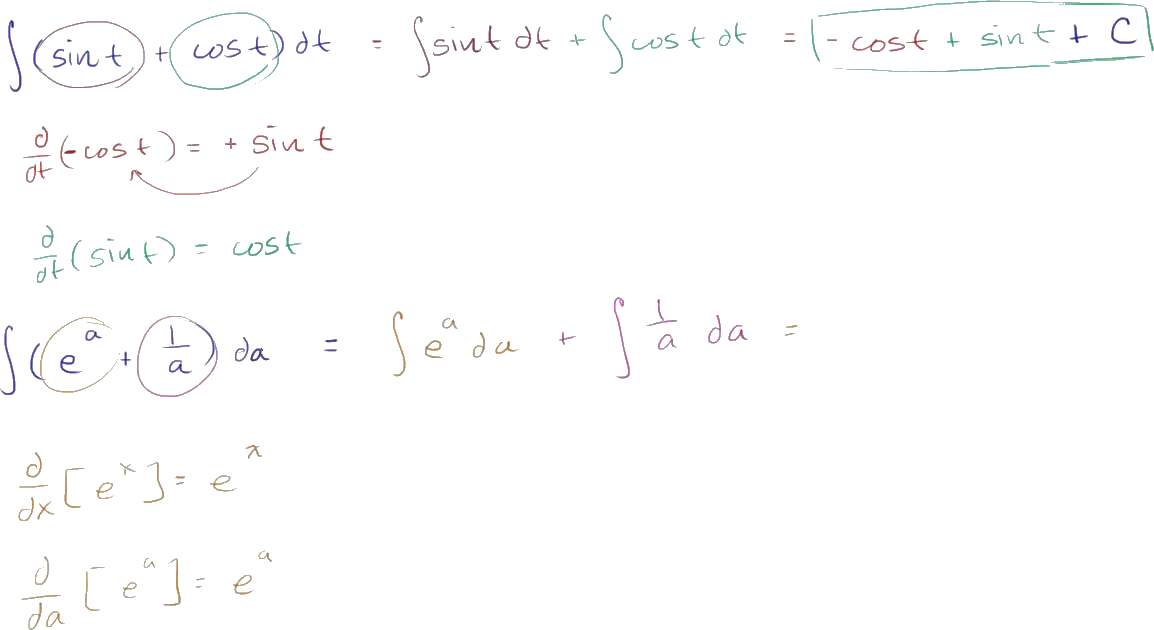 ∫(sin t + cos t) dt = ∫sin t dt + ∫cos t dt = -cos t + sin t + C
d/dt (-cos t) = + sin t
d/dt (sin t) = cos t
∫(e^a + 1/a) da = ∫e^a da + ∫ 1/a da =
d/dx [e^x] = e^x
d/da [e^a] = e^a